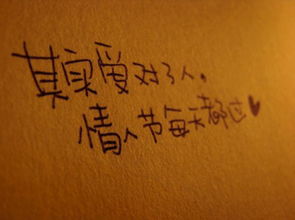 其实爱对了人。
情人节每天都过♥